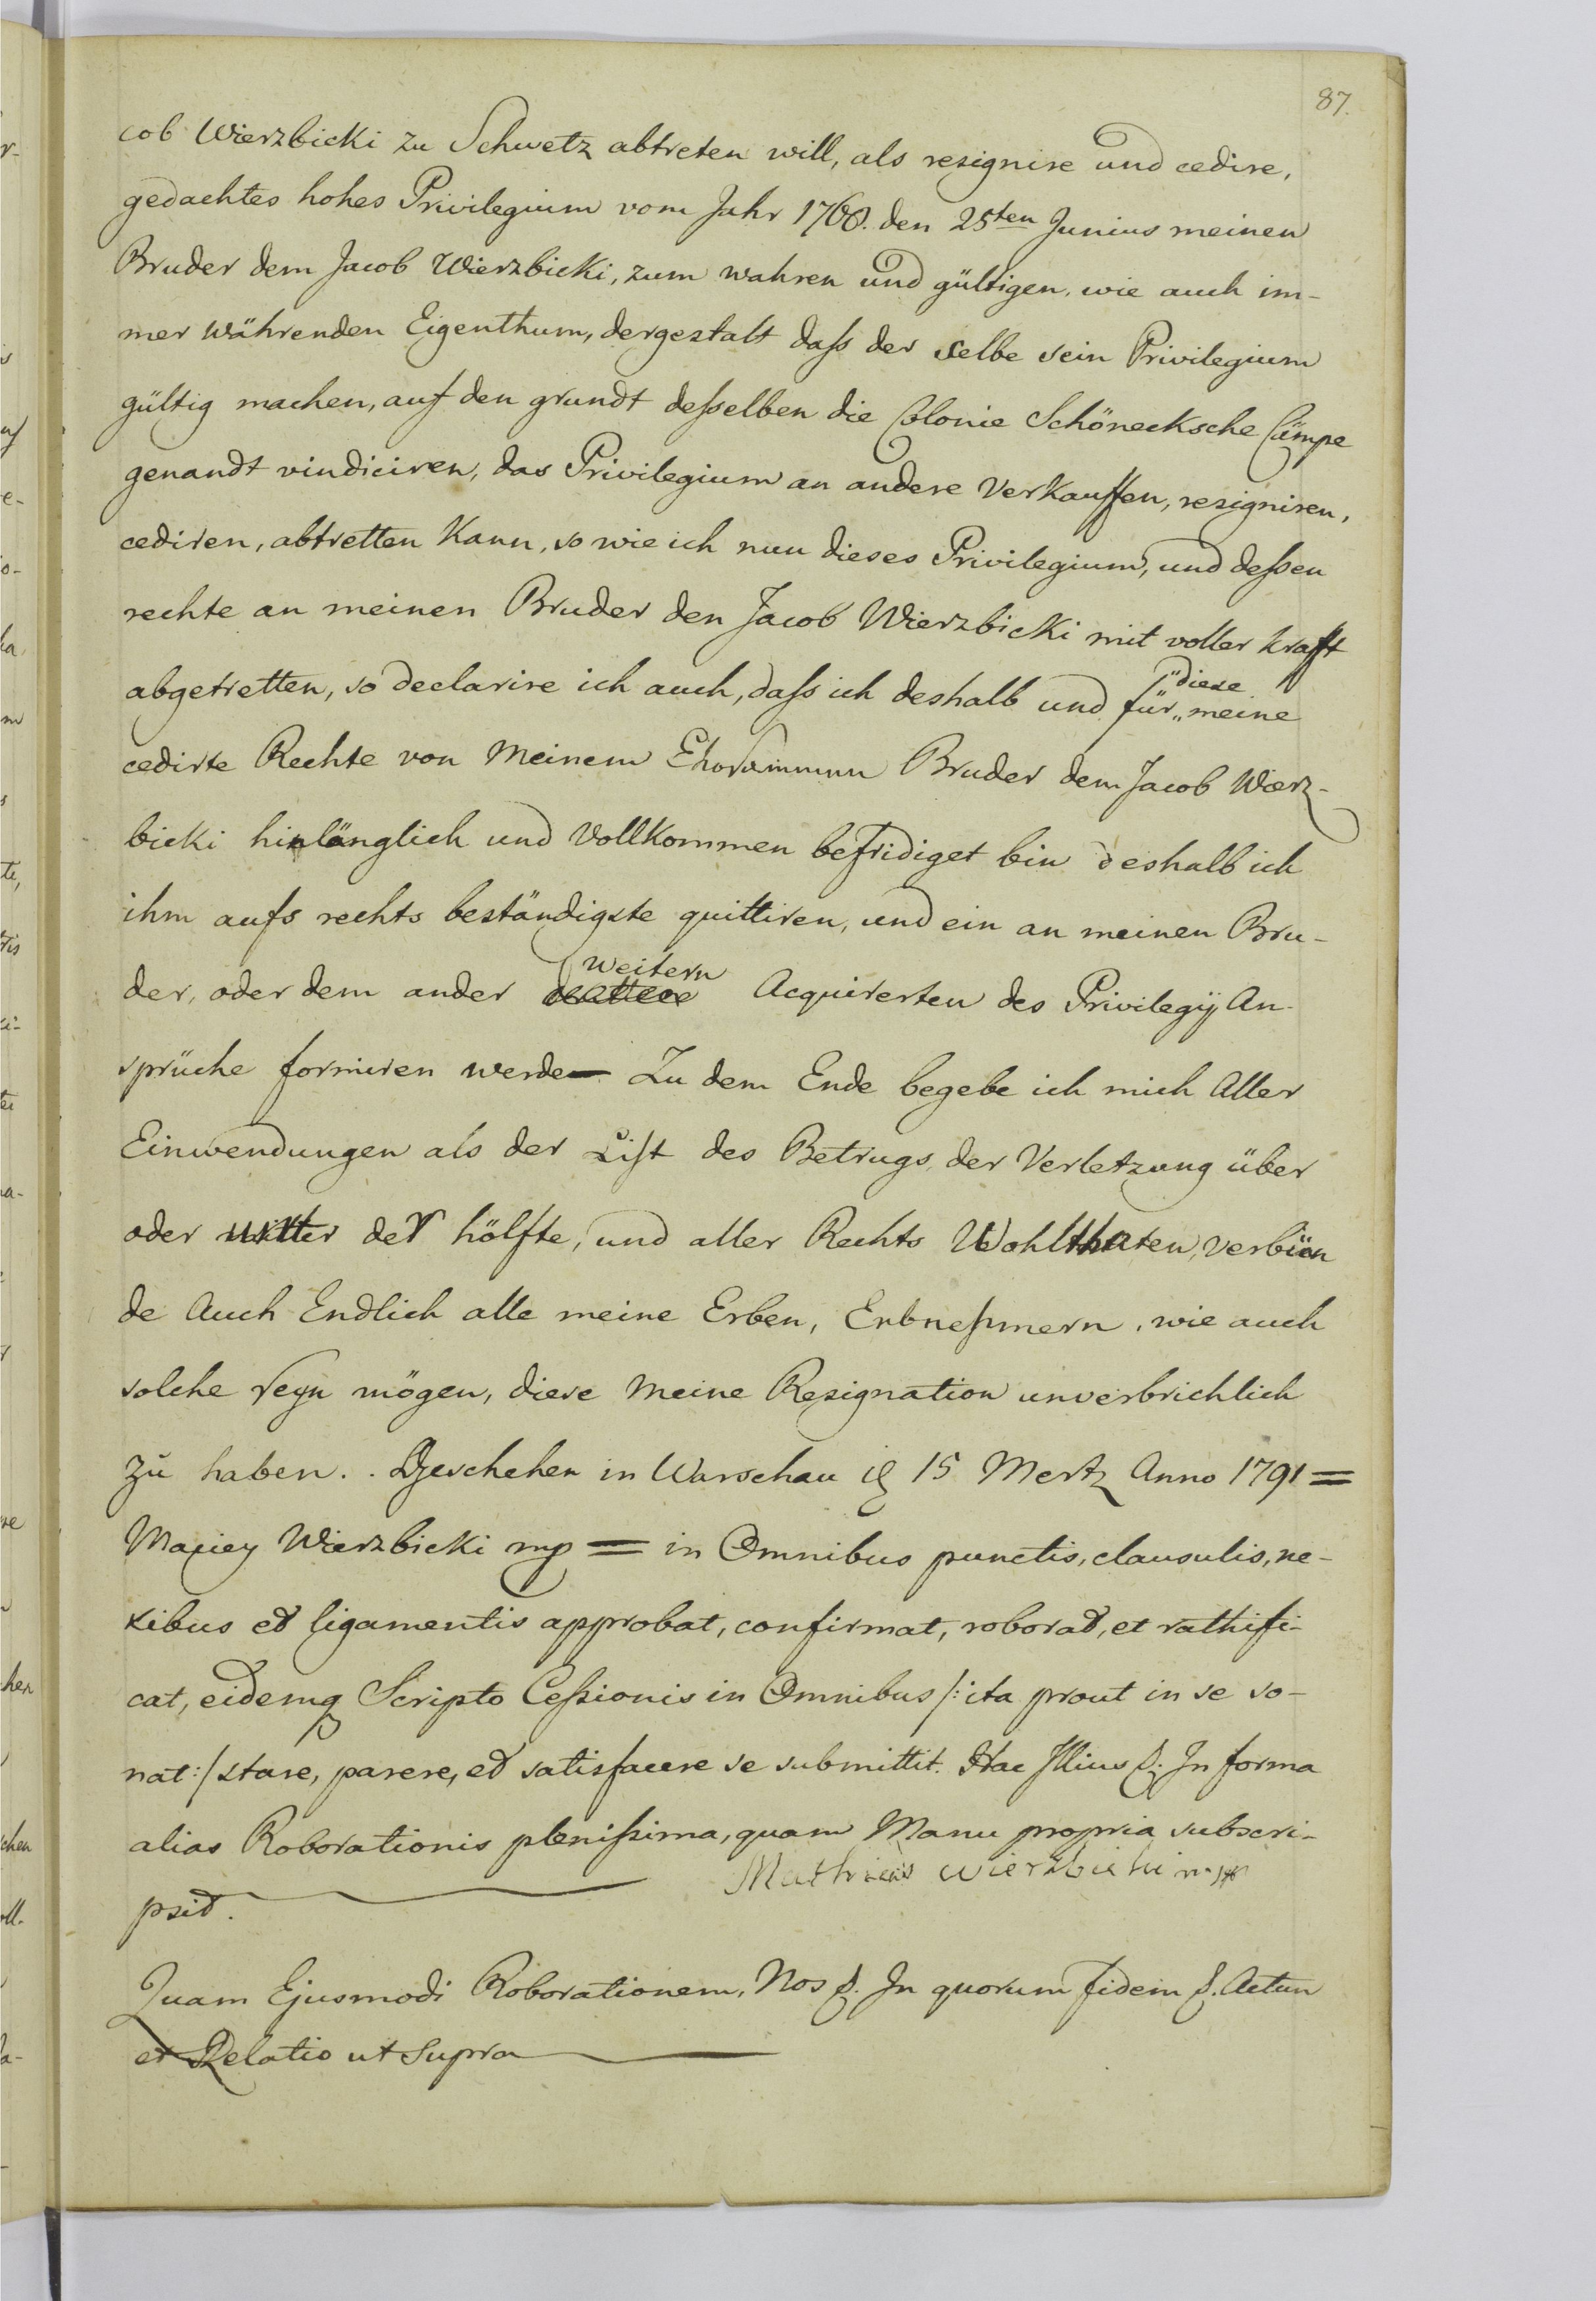 87.
cob Wierzbicki zu Schwetz abtreten will, als resignire und cedire,
gedachtes hohes Privilegium vom Jahr 1768. den 25ten Junius meinen
Bruder dem Jacob Wierzbicki, zum wahren und gültigen, wie auch im-
mer währenden Eigenthum, dergestalt daſs der selbe sein Privilegium
gültig machen, auf den grundt deſselben die Colonie Schönecksche Cämpe
genandt vindiciren, das Privilegium an andere Verkauffen, resigniren,
cediren, abtretten Kann, so wie ich nun dieses Privilegium, und deſsen
rechte an meinen Bruder den Jacob Wierzbicki mit voller kraft
abgetretten, so declarire ich auch, daſs ich deshalb und für „diese„ meine
cedirte Rechte von Meinem Bruder dem Jacob Wierz-
bicki hinlänglich und Vollkommen befridiget bin deshalb ich
ihm aufs rechts beständigste quittiren, und ein an meinen Bru-
der, oder dem ander weitern Acquirerten des Privilegij An-
sprüche formiren werde Zu dem Ende begebe ich mich Aller
Einwendungen als der Liſt des Betrugs, der Verletzung über
oder unter der hölfte, und aller Rechts Wohlthaten, verbün
de Auch Endlich alle meine Erben, Erbnehmern, wie auch
solche seyn mögen, diese Meine Resignation unverbrichlich
zu haben. . Geschehen in Warschau 15 Mertz Anno 1791 =
Maciey Wierzbicki mp = in Omnibus punctis, clausulis, ne-
xibus et ligamentis approbat, confirmat, roborat, et rathifi-
cat, eidemq Scripto Ceſsionis in Omnibus /: ita prout in se so-
nat :/ stare, parere, et satisfacere se submittit. Hac Illius &. In forma
alias Roborationis pleniſsima, quam Manu propria subscri-
psit. Mathias Wierzbicki mp
Quam Ejusmodi Roborationem, Nos &. In quorum fidem &. Actum
et Relatio ut Supra